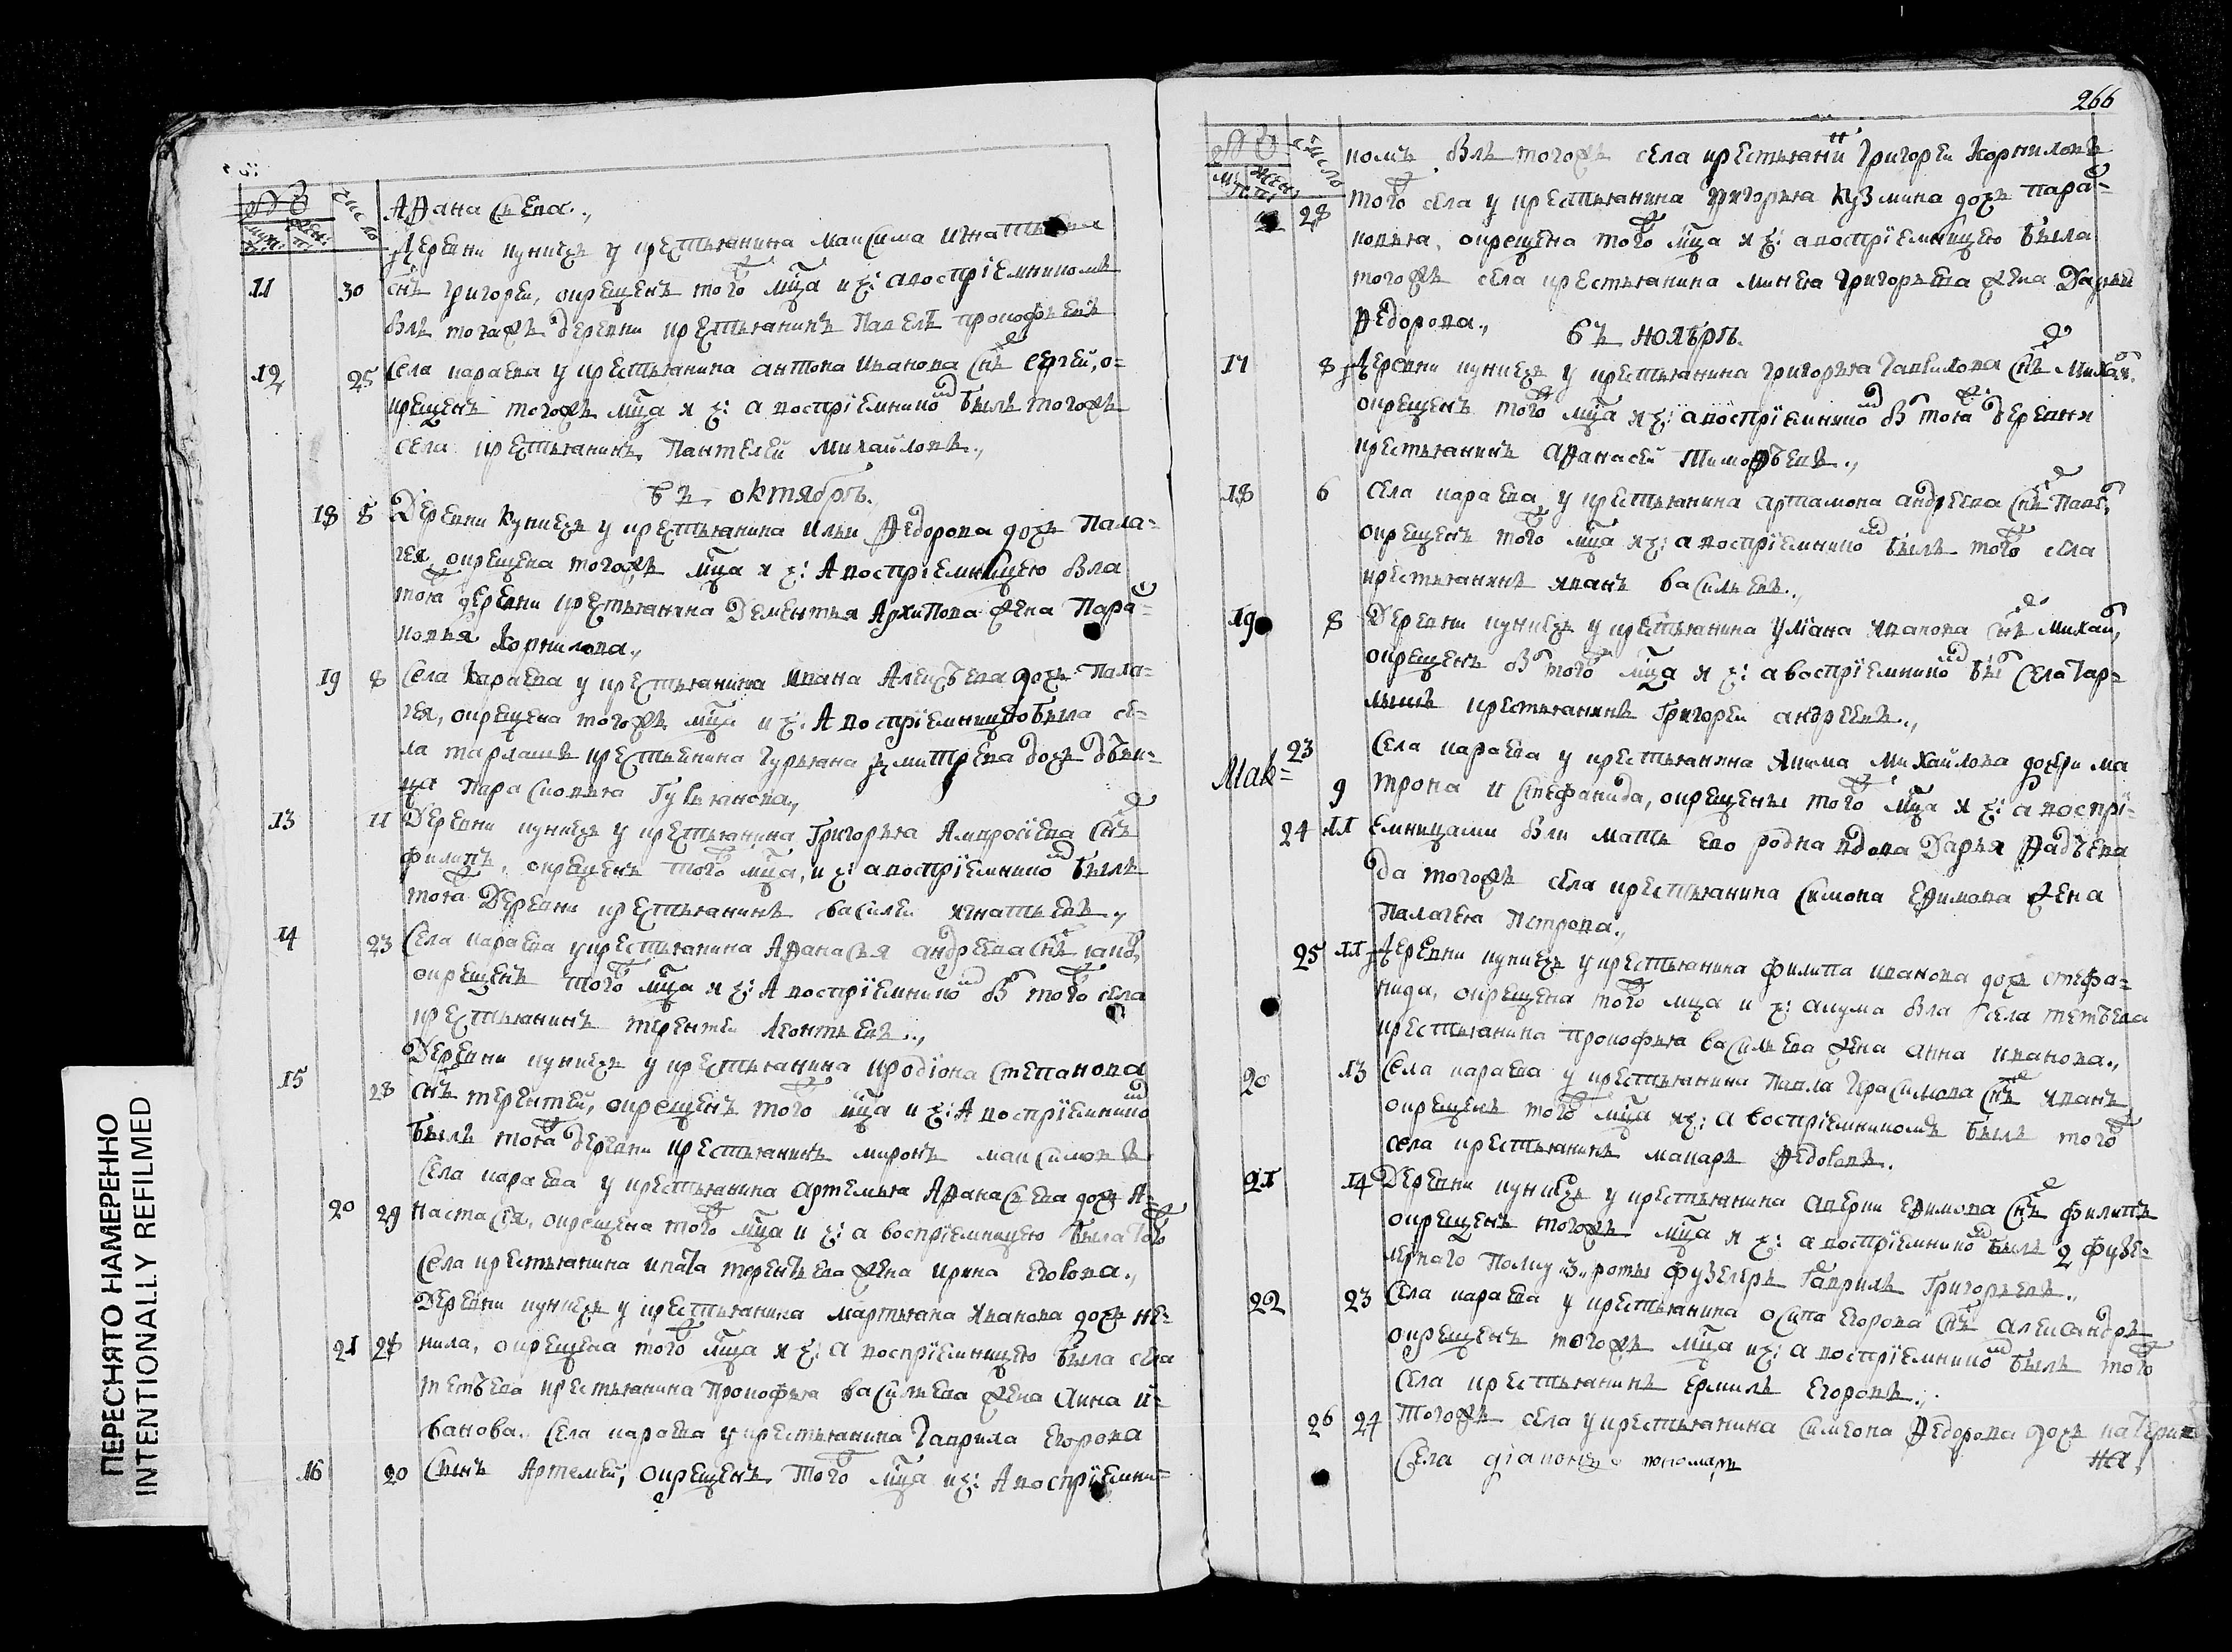 Афанасьева.,
Деревни куниехъ у крестьянина максима игнатьева
11 30 снъ григореи, окрещенъ того мца и хъ: авосприемникомъ
былъ тогожъ деревни крестьянинъ павелъ прокофьевъ
12 25 села караева у крестьянина антона иванова снъ сергей, о=
крещенъ тогожъ мца и хъ: авосприемнико былъ тогожъ
села крестьянинъ, пантелеи михаиловъ.,
въ октябрѣ.
18 5 Деревни куниехъ у крестьянина ильи федорова дочь пала=
гея, окрещена тогожъ мца и хъ: Авосприемницею была
тоя деревни крестьянина дементья Архипова жена пара=
ковья Корнилова.,
19 8 Села караева у крестьянина ивана Алексѣева дочь пала=
гея, окрещена тогожъ мца и хъ: Авосприемницею была се=
ла тарлашъ крестьянина гурьяна дмитрева дочь дѣви=
ца парасковья Гурьянова,,
13 11 Деревни куниехъ у крестьянина Григорья Амвросиева снъ
филипъ, окрещенъ того мца, и хъ: авосприемнико былъ
тоя Деревни крестьянинъ василеи игнатьевъ.,
14 23 Села караева у крестьянина Афанасья андреева снъ иаков,
окрещенъ того мца и хъ: Авосприемнико бы того села
крестьянинъ терентеи леонтьевъ.,
Деревни куниехъ у крестьянина иродиона степанова
15 28 снъ терентей, окрещенъ того мца и хъ: Авосприемнико
былъ тоя деревни крестьянинъ миронъ максимовъ
Села караева у крестьянина артемья Афанасьева дочь А=
20 29 настасия, окрещена того мца и хъ: авосприемницею была того
села крестьянина ипата терентьева жена ирина егорова.,
Деревни куниехъ у крестьянина мартьяна иванова дочь не=
21 28 нила, окрещена того мца и хъ: авосприемницею была села
тетѣева крестьянина прокофья васильева жена анна и=
ванова. Села караева у крестьянина гаврила егорова
16 20 Сынъ Артемеи, окрещенъ того мца и хъ: Авосприемни=
266
комъ былъ тогожъ села крестьянинъ григореи корниловъ
того села у крестьянина григорья кузмина дочь пара=
28 ковья, окрещена того мца и хъ: авосприемницею была
тогожъ села крестьянина минея григорьева жена Дарья
федорова., въ ноябрѣ.
17 8 Деревни куниехъ у крестьянина григорья гавилова снъ михаи.
окрещенъ того мца и хъ: авосприемнико бы тоя деревни
крестьянинъ афанасеи тимофѣевъ.,
18 6 села караева у крестьянина артамона андреева снъ паве,
окрещенъ того мца и хъ: авосприемнико былъ того села
крестьянинъ иванъ васильевъ.,
19 8 Деревни куниехъ у крестьянина улiана иванова снъ михаи,
окрещенъ того мца и хъ: авосприемнико бы села тар=
лышъ крестьянинъ григореи андреевъ.,
23 Села караева у крестьянина якима михаилова дочери ма
Мак= 9 трона и стефанида, окрещены того мца и хъ: авоспри=
24 11 емницами были мать ево родна вдова Дарья фадѣева
да тогожъ села крестьянина симона ефимова жена
палагея петрова.,
25 11 Деревни куниехъ у крестьянина филипа иванова дочь стефа=
нида, окрещена того мца и хъ: акума была села тетѣева
крестьянина прокофья васильева жена анна иванова.,
20 13 Села караева у крестьянина павла герасимова снъ иванъ
окрещенъ того мца и хъ: авосприемникомъ былъ того
села крестьянинъ макаръ федоровъ.
21 14 Деревни куниехъ у крестьянина аверки ефимова снъ филипъ
окрещенъ тогожъ мца и хъ: авосприемнико былъ 2 фузе=
лернаго полку 3 роты фузелеръ гаврилъ григорьевъ.,
22 23 Села караева у крестьянина осипа егорова снъ александръ
окрещенъ тогожъ мца и хъ: авосприемнико былъ того
села крестьянинъ ермилъ егоровъ.,
26 24 Тогожъ села у крестьянина симеона федорова дочь катери
на,
Села дiаконъ пономарь
ПЕРЕСНЯТО НАМЕРЕННО
INTENTIONALLY REFILMED